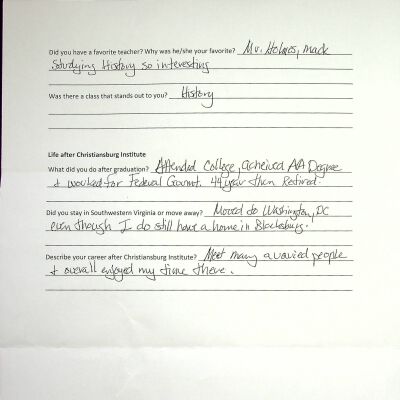 Did you have a favorite teacher? Why was he/she your favorite? Mr. Holmes, made
Studying History so interesting
Was there a class that stands out to you? History
Life after Christiansburg Institute
What did you do after graduation? Attended College, acheived AA Degree
& worked for Federal Govmt. 44 year then Retired.
Did you stay in Southwestern Virginia or move away? Moved to Washington, DC
even though I do still have a home in Blacksburg.
Describe your career after Christiansburg Institute? Meet many a varied people
& overall enjoyed my time there.